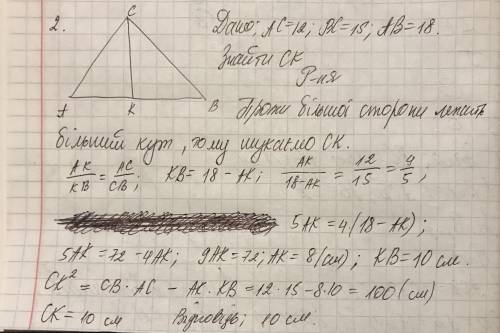 2.
C
Дано: AC=12; BC=15; AB=18.
Знайти CK
Р-ня
A K B
Проти більшої сторони лежить
більший кут, тому шукаємо CK.
AK/KB = AC/CB; KB = 18 - AK; AK/18-AK = 12/15 = 4/5;
5AK = 4(18-AK);
5AK = 72 - 4AK; 9AK = 72; AK = 8(см); KB = 10 см.
CK² = CB · AC - AK · KB = 12 · 15 - 8 · 10 = 100 (см)
CK = 10 см Відповідь: 10 см.